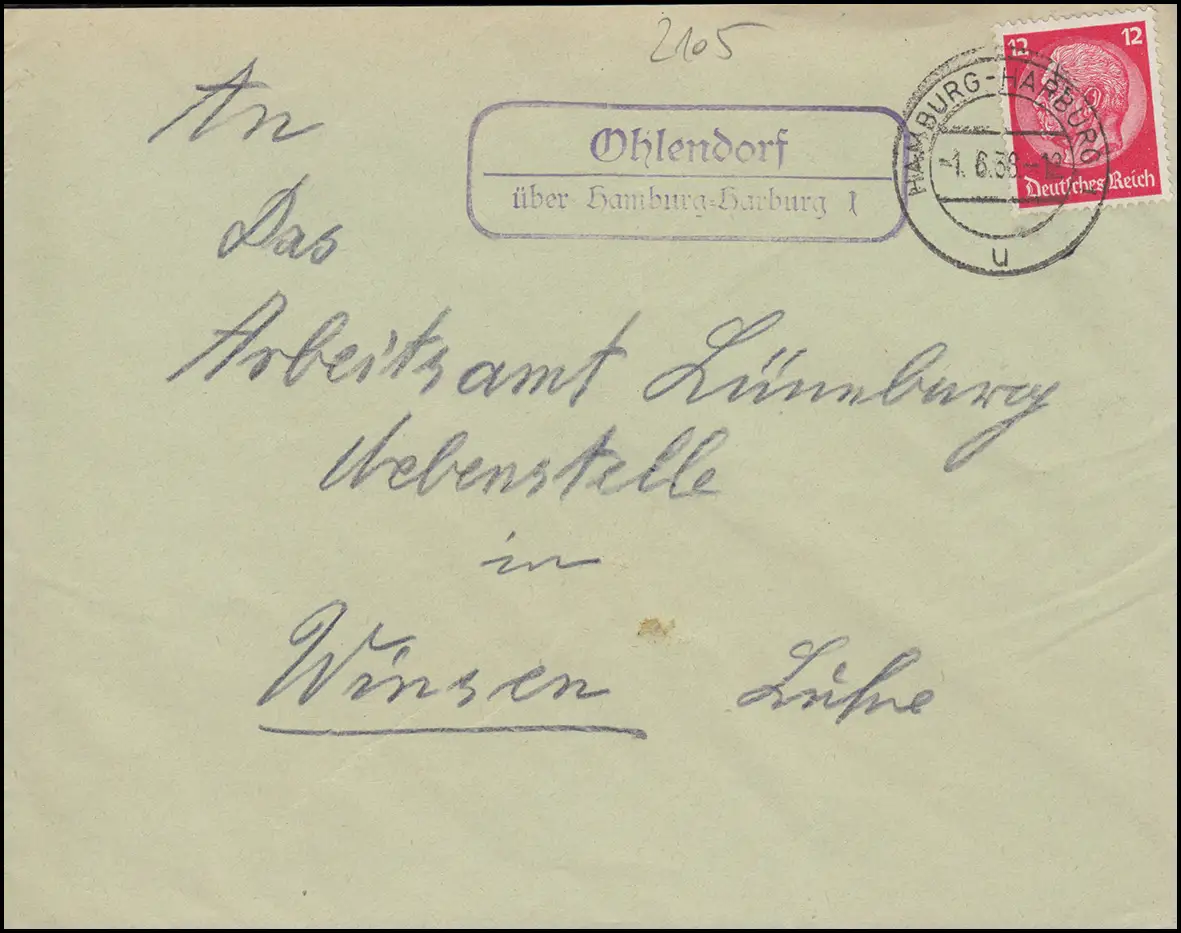 2105
12 12
Deutsches Reich
HAMBURG-HARBURG 1
-1. 6.38.-12
u
Ohlendorf
über Hamburg-Harburg 1
An
Das
Arbeitsamt Lüneburg
Nebenstelle
in
Winsen Luhe